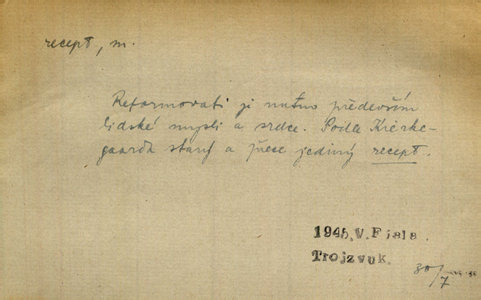 recept, m.
Reformovati je nutno především
lidské mysli a srdce. Podle Kierke-
gaarda starý a přece jediný recept.
1945, V. Fiala.
Trojzvuk.
30/7